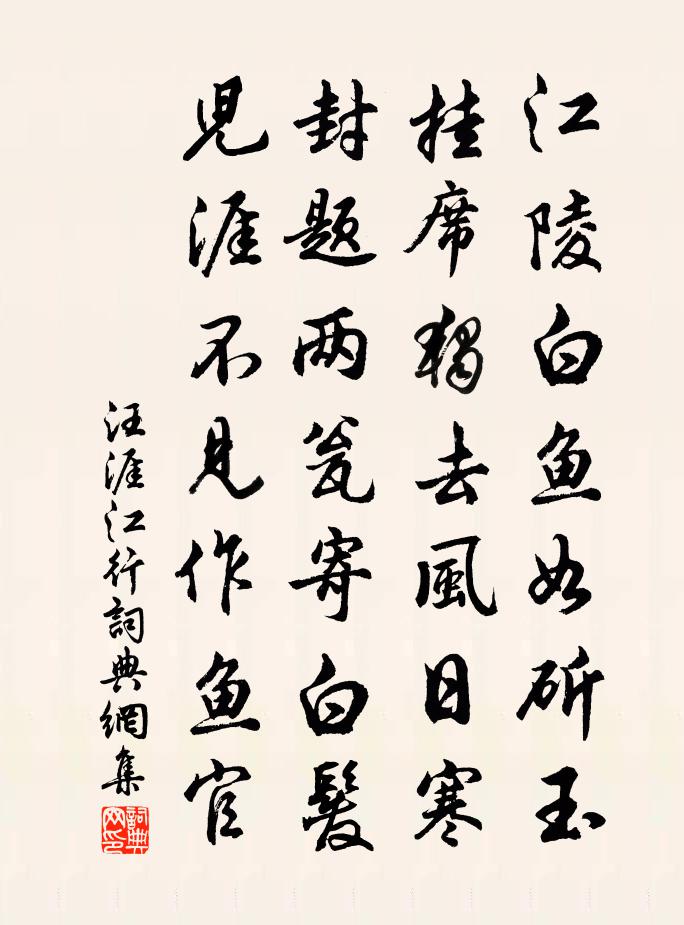 江陵白鱼如斫玉
挂席獨去風日寒
封题两瓮寄白髮
児涯不见作鱼官
汪涯江行詞典網集
詞典網印